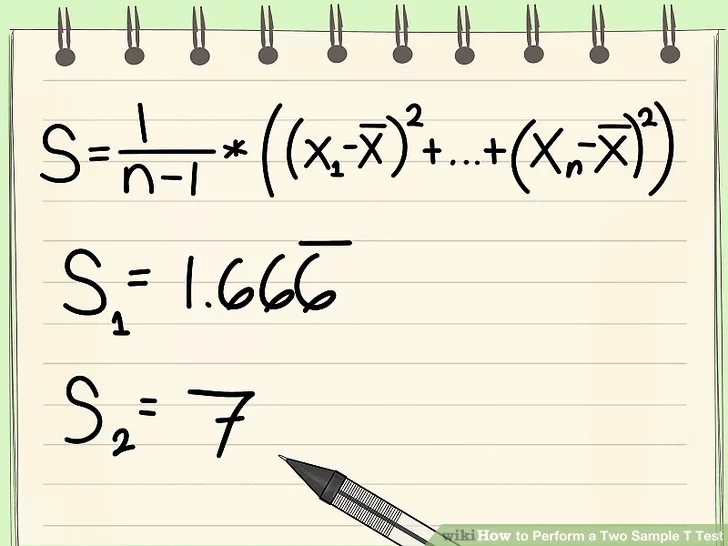 S = 1/(n-1) * ((x₁-x̅)² + ... + (xₙ-x̅)²)
S₁ = 1.666̅
S₂ = 7
wikiHow to Perform a Two Sample T Test